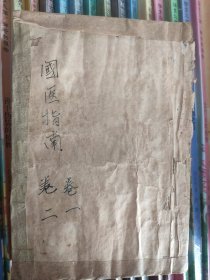 國医指南
卷一
卷二